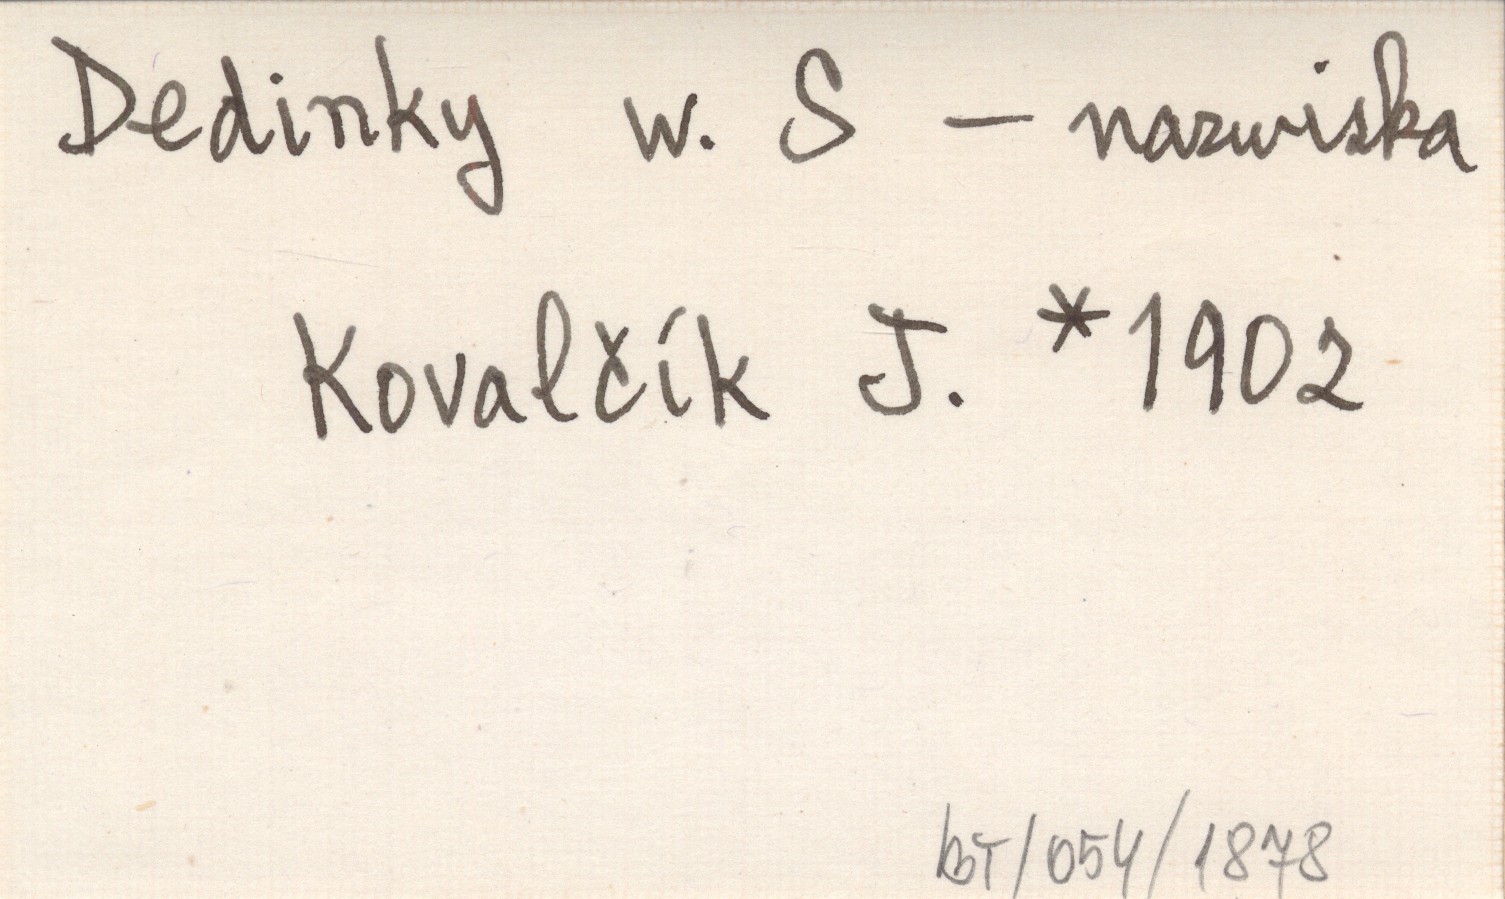 Dedinky w. S – nazwiska
Kovalčík J. *1902
bT/054/1878